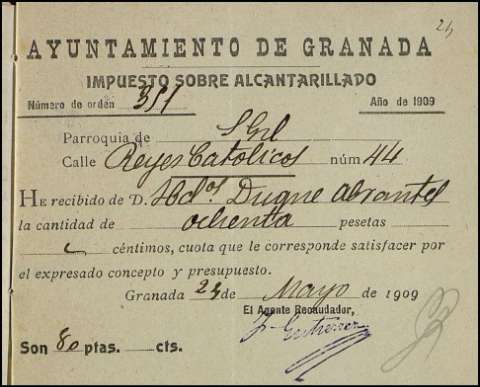 24
AYUNTAMIENTO DE GRANADA
IMPUESTO SOBRE ALCANTARILLADO
Número de orden 311 Año de 1909
Parroquia de S Gil
Calle Reyes Catolicos núm 44
HE recibido de D. Hdos. Duque Abrantes
la cantidad de ochenta pesetas
céntimos, cuota que le corresponde satisfacer por
el expresado concepto y presupuesto.
Granada 24 de Mayo de 1909
El Agente Recaudador,
Son 80 ptas. cts.